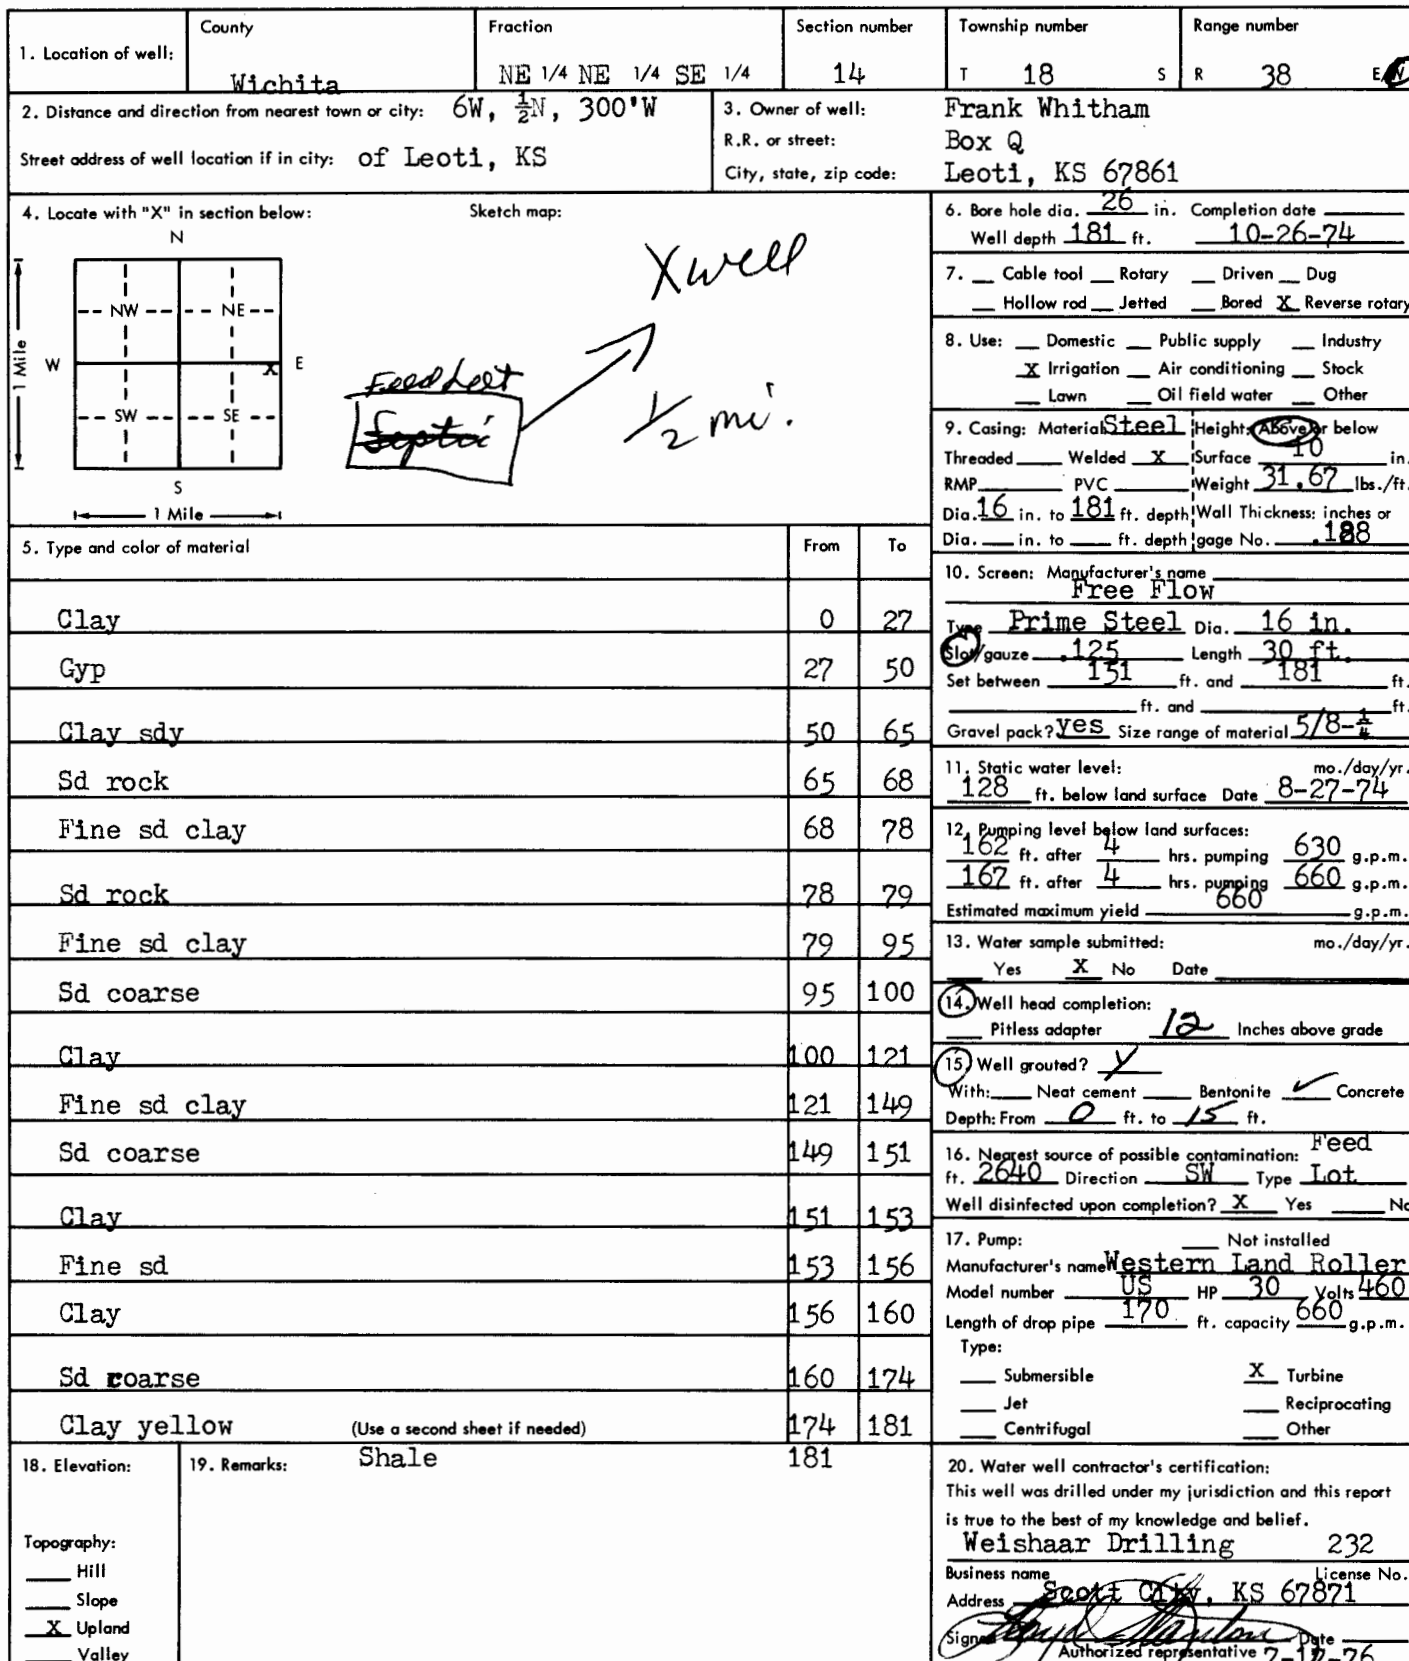 1. Location of well:
County
Wichita
Fraction
NE 1/4 NE 1/4 SE 1/4
Section number
14
Township number
T 18 S
Range number
R 38 E/W
2. Distance and direction from nearest town or city: 6W, ½N, 300'W
Street address of well location if in city: of Leoti, KS
3. Owner of well: Frank Whitham
R.R. or street: Box Q
City, state, zip code: Leoti, KS 67861
4. Locate with "X" in section below:
N
NW NE
1 Mile W X E
SW SE
S
1 Mile
Sketch map:
X well
Feed Lott
Septic
1/2 mi.
5. Type and color of material From To
Clay 0 27
Gyp 27 50
Clay sdy 50 65
Sd rock 65 68
Fine sd clay 68 78
Sd rock 78 79
Fine sd clay 79 95
Sd coarse 95 100
Clay 100 121
Fine sd clay 121 149
Sd coarse 149 151
Clay 151 153
Fine sd 153 156
Clay 156 160
Sd coarse 160 174
Clay yellow (Use a second sheet if needed) 174 181
Shale 181
6. Bore hole dia. 26 in. Completion date
Well depth 181 ft. 10-26-74
7. Cable tool Rotary Driven Dug
Hollow rod Jetted Bored X Reverse rotary
8. Use: Domestic Public supply Industry
X Irrigation Air conditioning Stock
Lawn Oil field water Other
9. Casing: Material Steel Height: Above or below
Threaded Welded X Surface 10 in.
RMP PVC Weight 31.67 lbs./ft.
Dia. 16 in. to 181 ft. depth Wall Thickness: inches or
Dia. in. to ft. depth gage No. .188
10. Screen: Manufacturer's name
Free Flow
Type Prime Steel Dia. 16 in.
Slot/gauze .125 Length 30 ft.
Set between 151 ft. and 181 ft.
ft. and ft.
Gravel pack? yes Size range of material 5/8-¼
11. Static water level: mo./day/yr.
128 ft. below land surface Date 8-27-74
12. Pumping level below land surfaces:
162 ft. after 4 hrs. pumping 630 g.p.m.
167 ft. after 4 hrs. pumping 660 g.p.m.
Estimated maximum yield 660 g.p.m.
13. Water sample submitted: mo./day/yr.
Yes X No Date
14. Well head completion:
Pitless adapter 12 Inches above grade
15. Well grouted? Y
With: Neat cement Bentonite ✓ Concrete
Depth: From 0 ft. to 15 ft.
16. Nearest source of possible contamination: Feed
ft. 2640 Direction SW Type Lot
Well disinfected upon completion? X Yes No
17. Pump: Not installed
Manufacturer's name Western Land Roller
Model number US HP 30 Volts 460
Length of drop pipe 170 ft. capacity 660 g.p.m.
Type:
Submersible X Turbine
Jet Reciprocating
Centrifugal Other
18. Elevation:
Topography:
Hill
Slope
X Upland
Valley
19. Remarks:
20. Water well contractor's certification:
This well was drilled under my jurisdiction and this report
is true to the best of my knowledge and belief.
Weishaar Drilling 232
Business name License No.
Address Scott City, KS 67871
Signed Date
Authorized representative